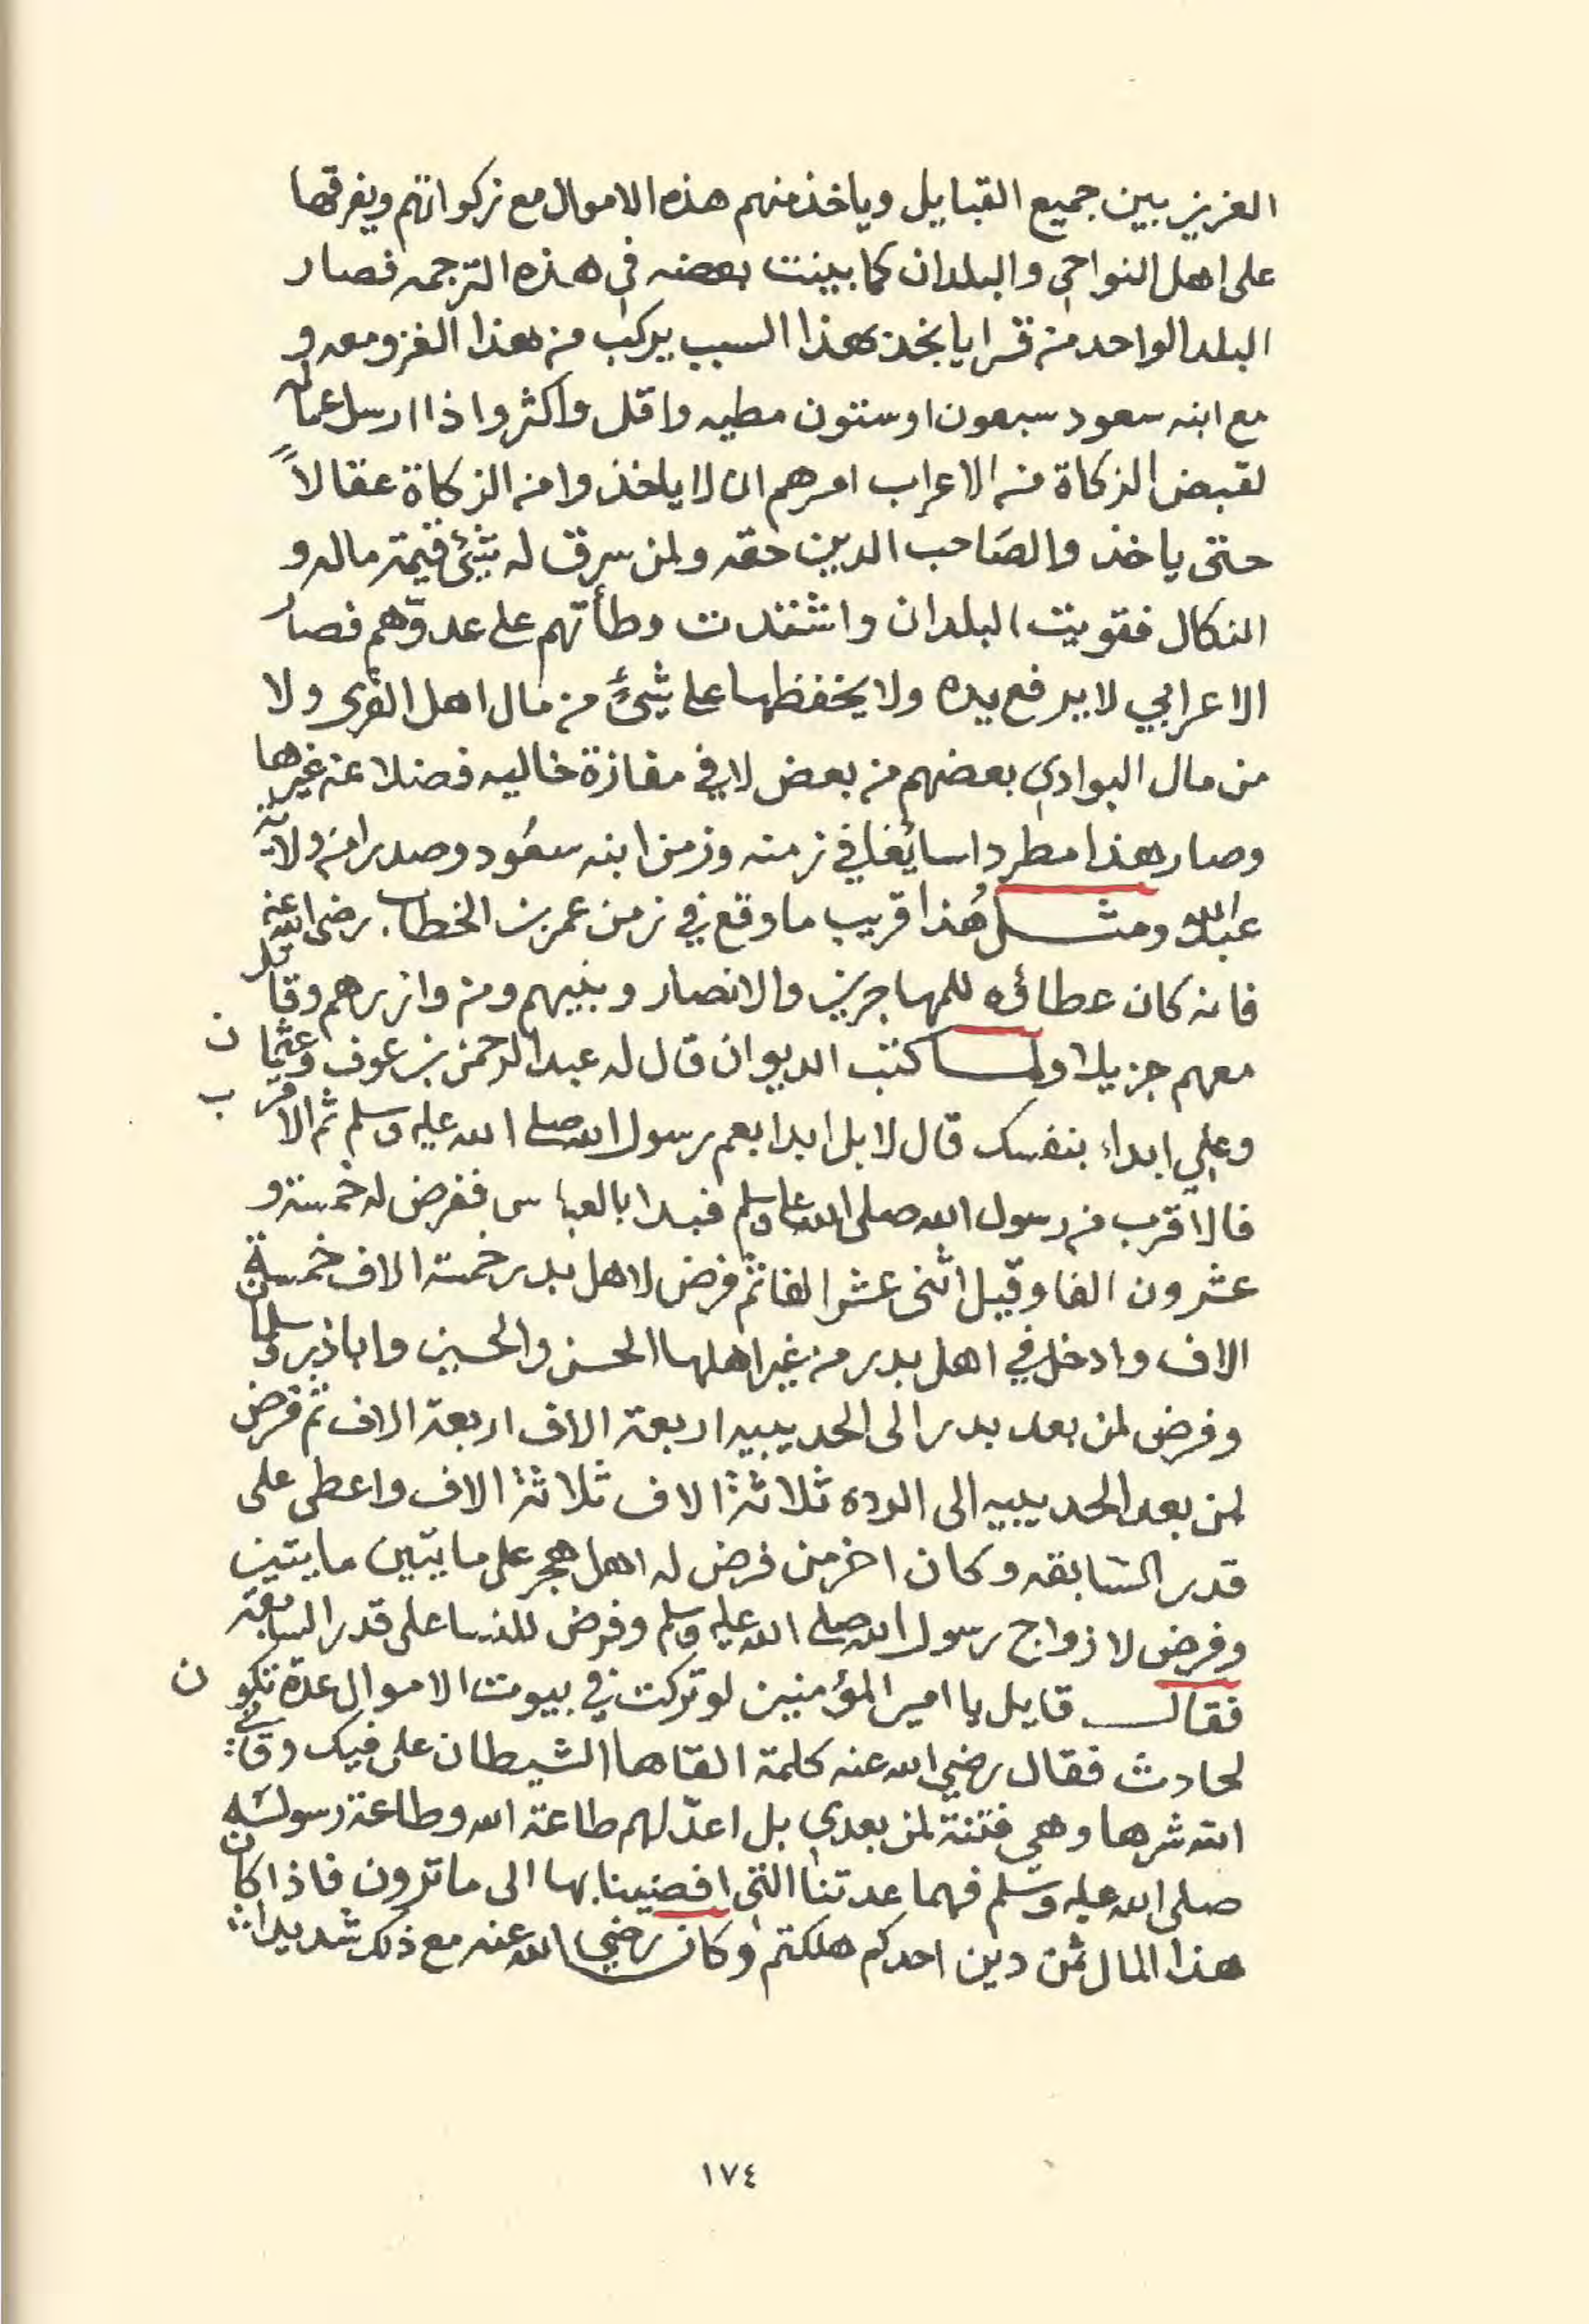 العزيز بين جميع القبايل وياخذ منهم هذه الاموال مع زكواتهم ويفرقها
على اهل النواحي والبلدان كما بينت بعضه في هذه الترجمه فصار
البلد الواحد من قرايا نجد بهذا السبب يركب من هذا الغزو معه و
مع ابنه سعود سبعون او ستون مطيه واقل واكثر واذا ارسل عماله
لقبض الزكاة من الاعراب امرهم ان لا ياخذوا من الزكاة عقالاً
حتى ياخذوا لصاحب الدين حقه ولمن سرق له شئ قيمة ماله و
النكال فقويت البلدان واشتدت وطأتهم على عدوّهم فصار
الاعرابي لا يرفع يده ولا يخفظها على شئ من مال اهل القرى ولا
من مال البوادي بعضهم من بعض لا في مفازة خاليه فضلا عن غيرها
وصار هذا مطردا سايغا في زمنه وزمن ابنه سعود وصدرا من ولاية
عبدالله ومثل هذا قريب ما وقع في زمن عمر بن الخطاب رضى الله عنه
فانه كان عطاؤه للمهاجرين والانصار وبنيهم ومن وازرهم وقاتل
معهم جزيلا ولما كتب الديوان قال له عبد الرحمن بن عوف وعثمان
وعلي ابداء بنفسك قال لا بل ابدا بعم رسول الله صلى الله عليه وسلم ثم الاقرب
فالاقرب من رسول الله صلى الله عليه وسلم فبدا بالعباس ففرض له خمسة و
عشرون الفا وقيل اثنى عشر الفا ثم فرض لاهل بدر خمسة الاف خمسة
الاف وادخل في اهل بدر من غير اهلها الحسن والحسين واباذر وسلمان
وفرض لمن بعد بدر الى الحديبيه اربعة الاف اربعة الاف ثم فرض
لمن بعد الحديبيه الى الرده ثلاثة الاف ثلاثة الاف واعطى على
قدر السابقه وكان اخر من فرض له اهل هجر على مايتين مايتين
وفرض لازواج رسول الله صلى الله عليه وسلم وفرض للنسا على قدر السابقة
فقال قايل يا امير المؤمنين لو تركت في بيوت الاموال عدة تكون
لحادث فقال رضي الله عنه كلمة القاها الشيطان على فيك وقاني
الله شرها وهي فتنة لمن بعدي بل اعدّ لهم طاعة الله وطاعة رسوله
صلى الله عليه وسلم فهما عدتنا التى افضينا بها الى ما ترون فاذا كان
هذا المال ثمن دين احدكم هلكتم وكان رضي الله عنه مع ذلك شديدا
١٧٤